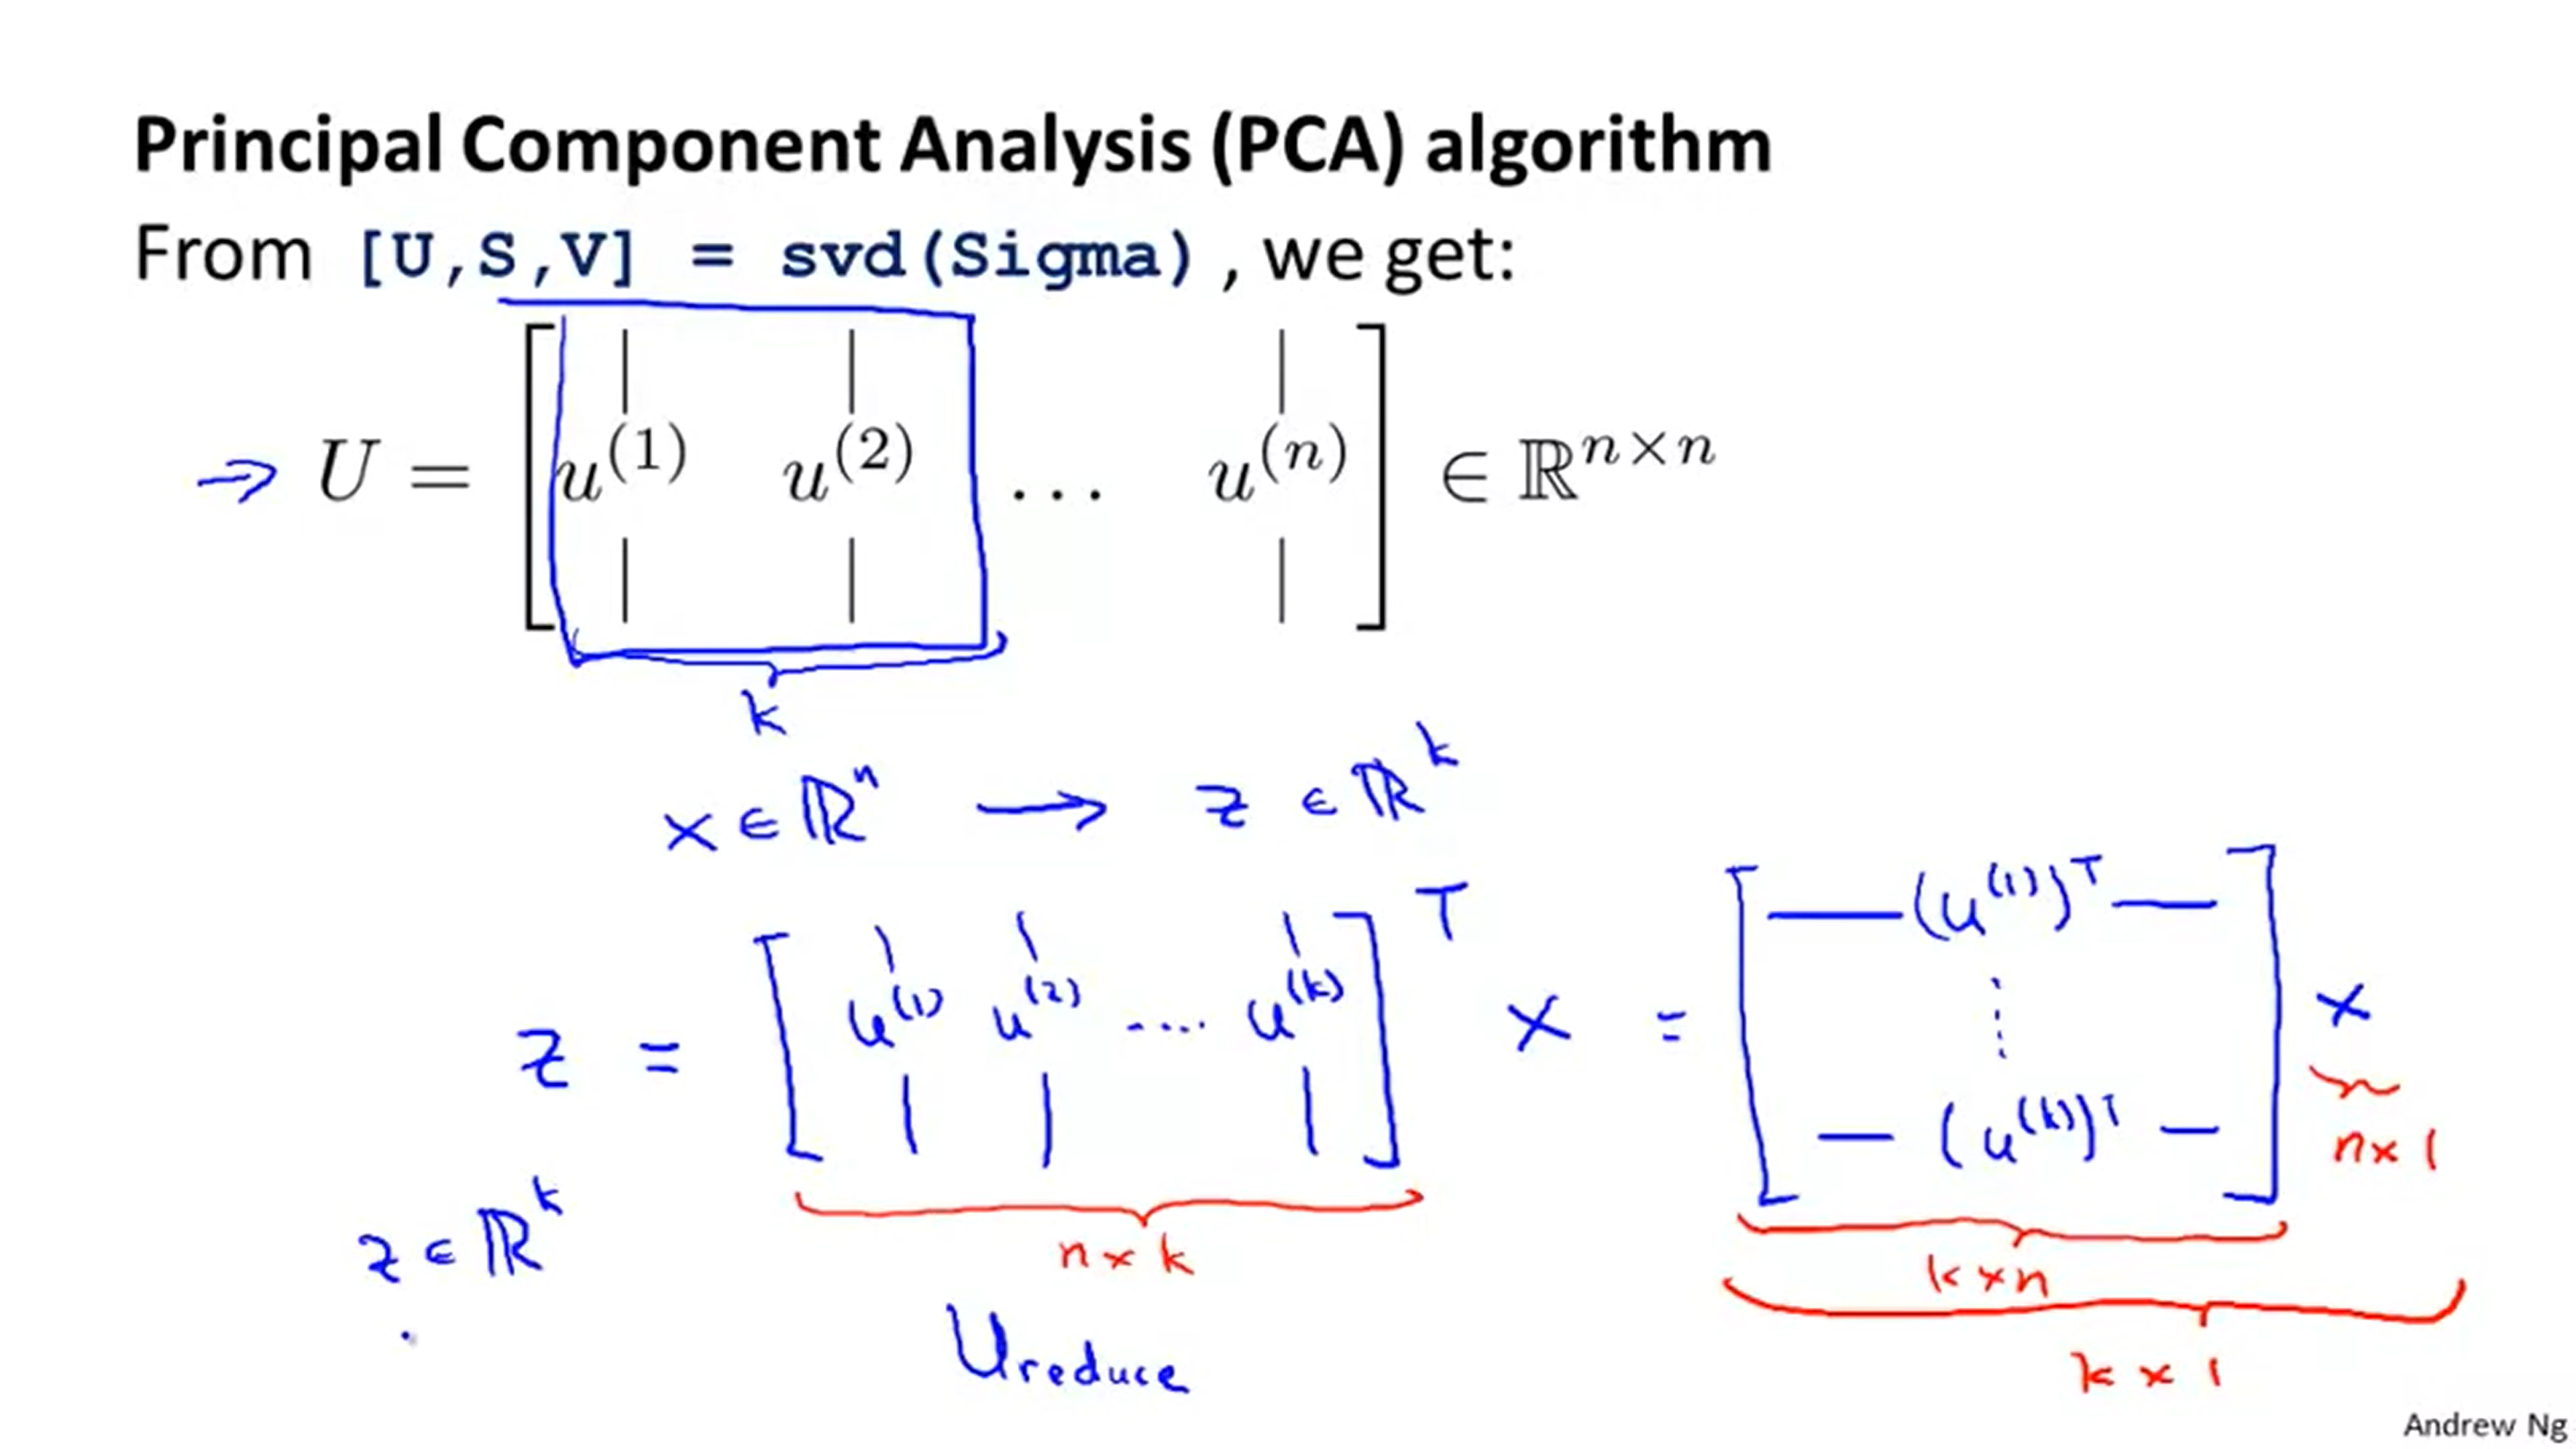 Principal Component Analysis (PCA) algorithm
From [U,S,V] = svd(Sigma) , we get:
⇒ U = [ u^(1) u^(2) ... u^(n) ] ∈ ℝ^{n×n}
k
x ∈ ℝ^n → z ∈ ℝ^k
z = [ u^(1) u^(2) .... u^(k) ]^T x = [ — (u^(1))^T — ⋮ — (u^(k))^T — ] x
n×1
z ∈ ℝ^k
n×k
k×n
U_reduce
k×1
Andrew Ng